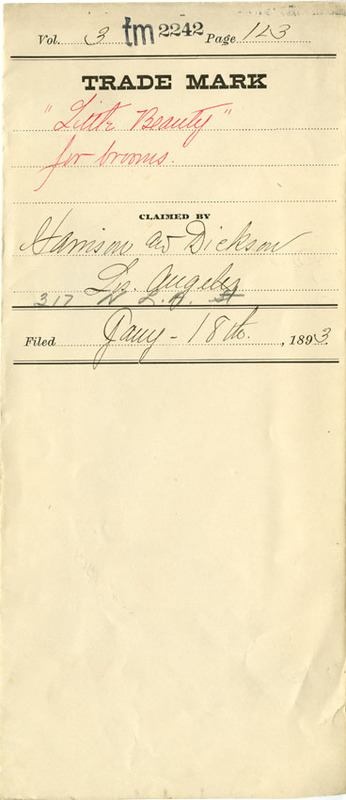 Vol. 3 tm 2242 Page 123
TRADE MARK
"Little Beauty"
for brooms.
CLAIMED BY
Harrison Dickson
Los Angeles
317 N L.A. St
Filed Jany - 18th. , 1893